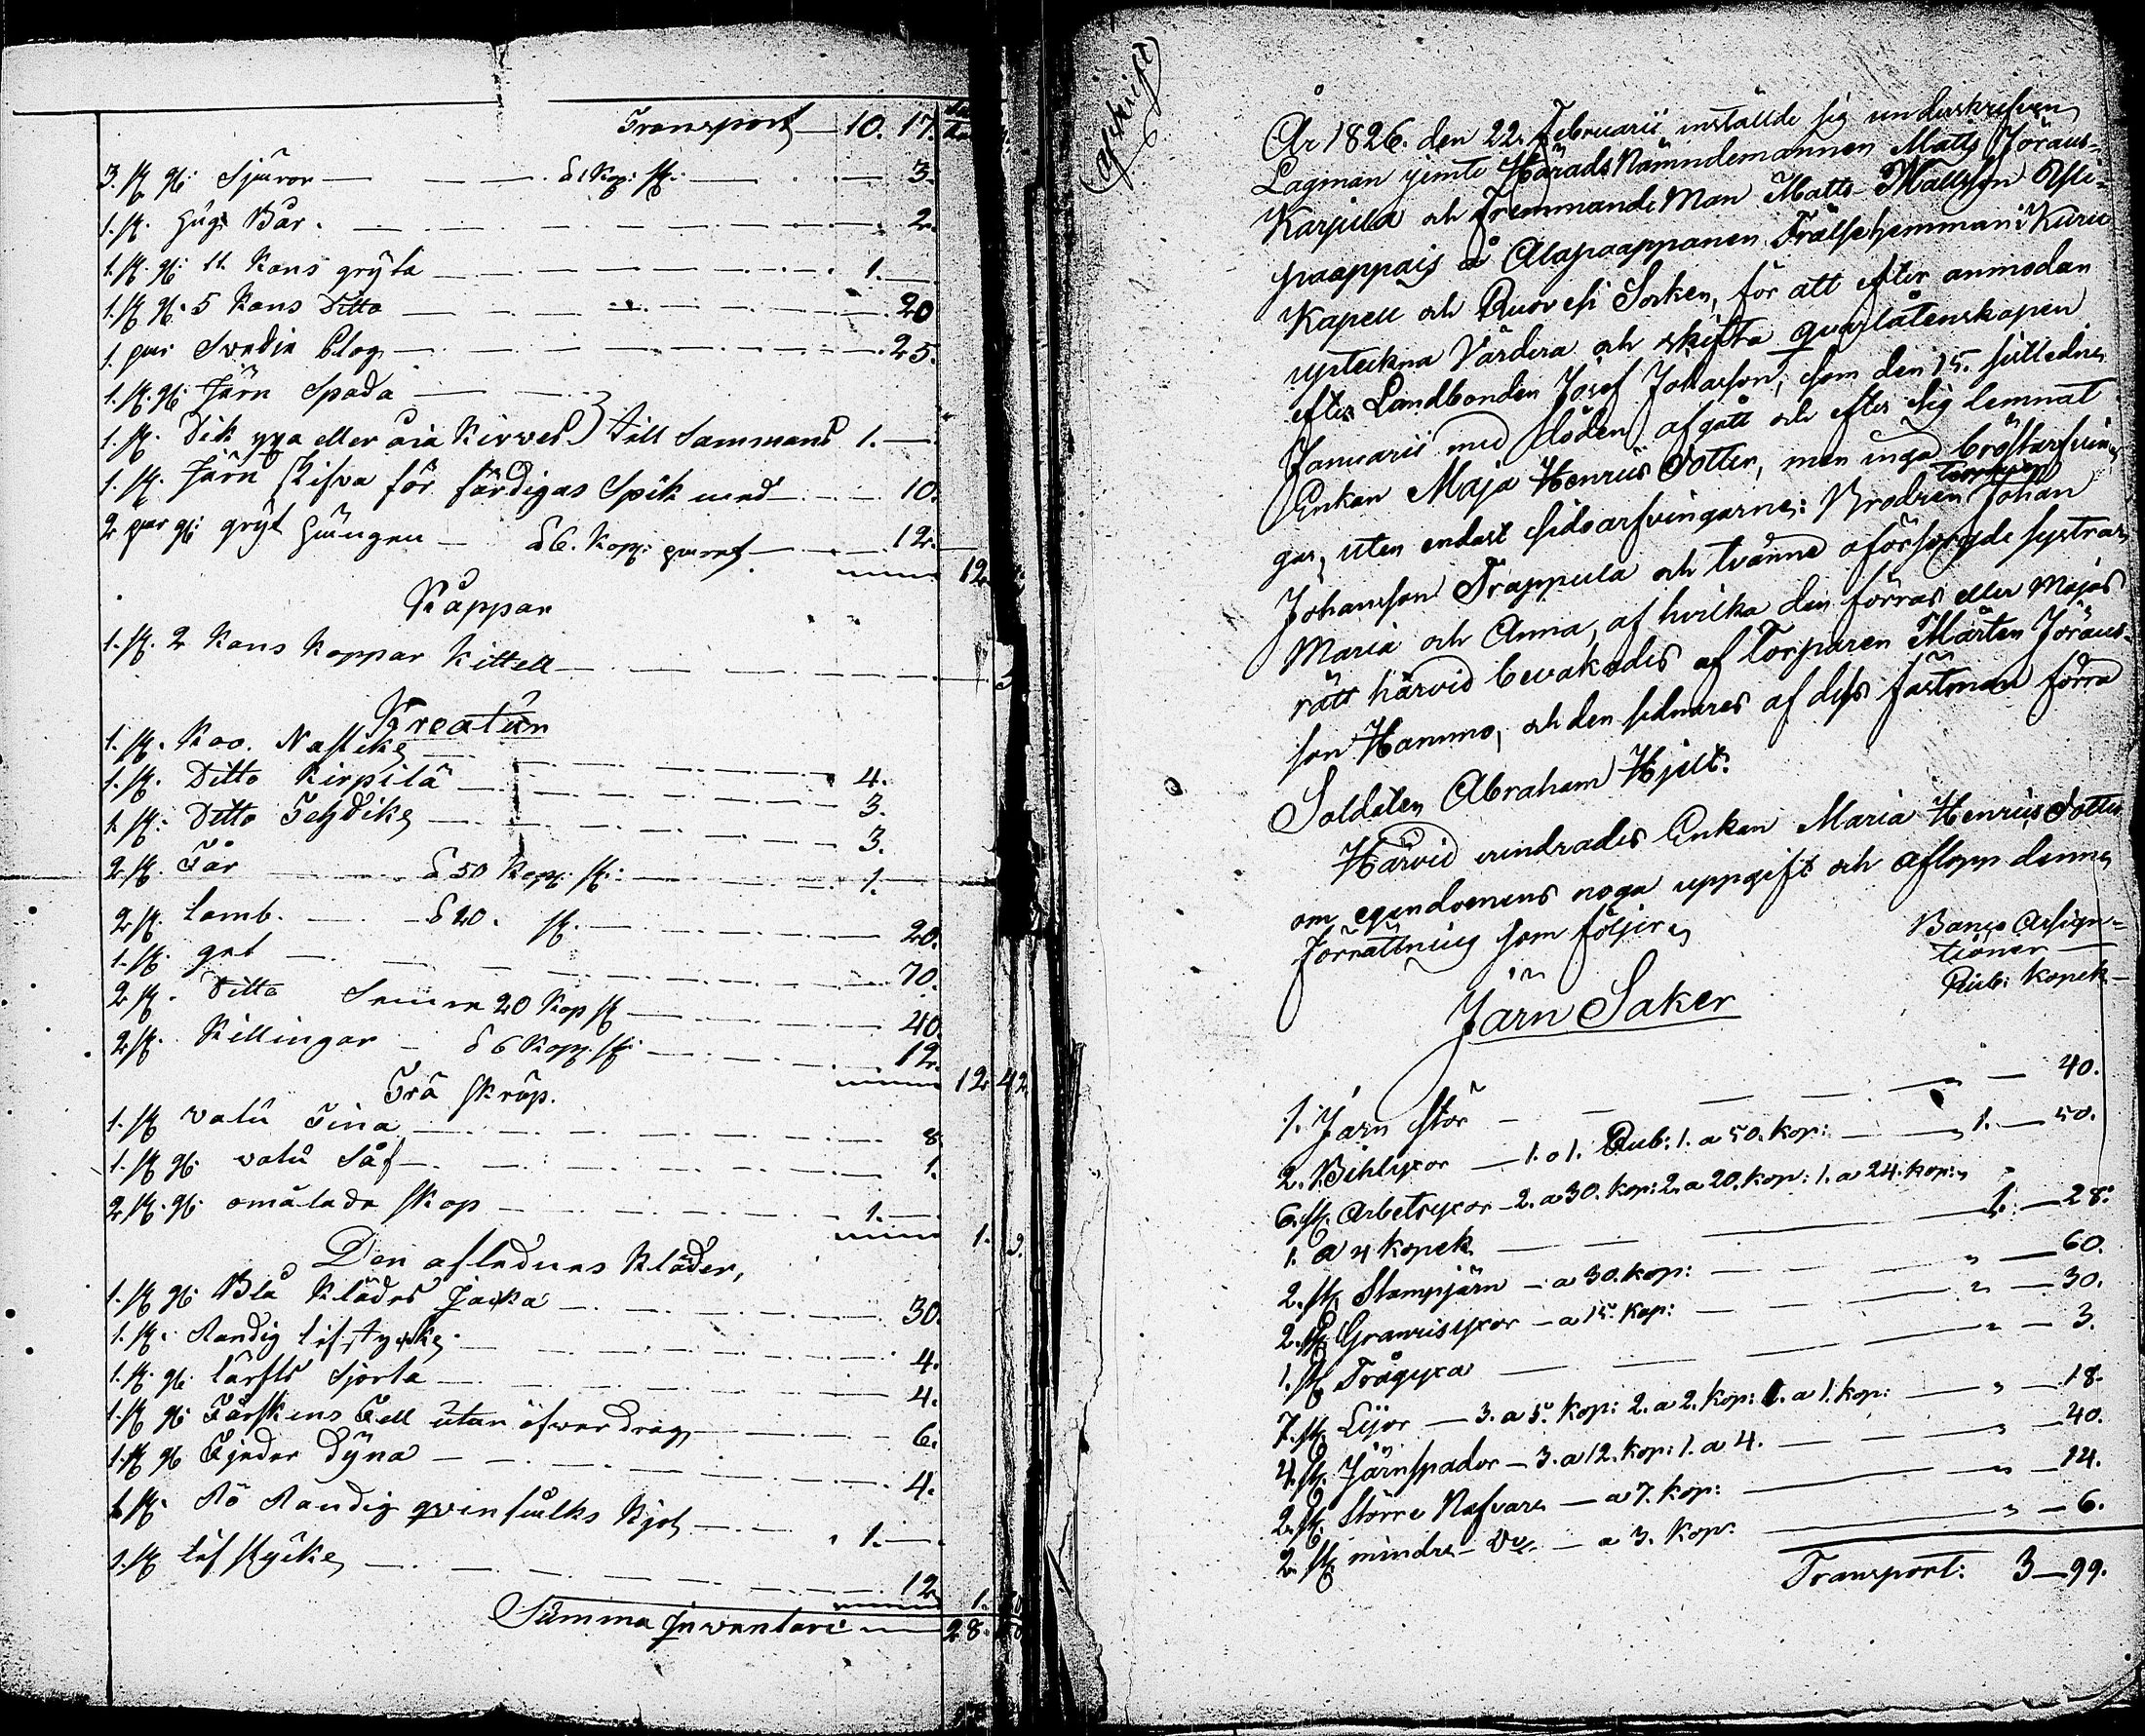 Transport — 10. 17
3. st. gl: Sjuror — à 1 kop: st: — 3.
1. st. hugg Bår. — 2.
1. st. gl: 11 Kans gryta — 1. —
1. st. gl: 5 Kans Ditto — 20
1. par Svedje Plog — 25.
1. st. gl: Järn Spada —
1. st. Dik yxa eller oia Kirves } till sammans 1. —
1. st. Järn skifva för färdigas Spik med — 10.
2 par gl: gryt hängen — à 6. Kop: paret — 12. —
12
Kåppar
1. st. 2 Kans Koppar Kittell —
Kreatur
1. st. Koo. Nastike — 4.
1. st. Ditto Kirpilä — 3.
1. st. Ditto Tehdike — 3.
2 st. Får — à 50 Kop: st: — 1. —
2 st. Lamb. — à 20. st. — 20.
1. st. get — 70.
2 st. Ditto Semre 20 Kop st — 40.
2 st. Killingar — à 6 Kop: st: — 12.
12 42.
Trä skråp.
1. st vatu Tina — 8
1. st gl: vatu Såf — 1.
2 st. gl: omålade skop — 1. —
1. 9.
Den aflednes Kläder,
1. st gl: Blå Klädes Jacka — 30.
1. st. Randig lifstycke — 4.
1. st. gl: lärfts Sjorta — 4.
1. st gl: Fårskins Fell utan öfver drag — 6.
1. st gl: Fjeder Dyna — 4.
1. st. Rö Randig qvinfolks Kjol — 1. —
1. st lif stycke — 12
1.
Summa Inventarie — 28.
(afskrift)
År 1826. den 22. Februarii inställde sig underskrefven
Lagman jemte Härads Nämndemannen Matts Jöraus-
Karjula och Fremmande Man Matts Mattsson Yli-
paappais å Alapaappanen Frälsehemman i Kuru
Kapell och Ruovesi Socken, för att efter anmodan
upteckna Värdera och skifta qvarlåtenskapen
efter Landbonden Josef Johansson, som den 15. sistledne
Januarii med döden afgått och efter sig lemnat
Enkan Maja Henrics Dotter, men inga bröstarfvin-
gar, utan endast sidoarfvingarne: Brodren Torparen Johan
Johansson Trappula och tvänne oförsörgde systrar
Maria och Anna, af hvilka den förras eller Majas
rätt härvid bevakades af Torparen Mårten Jöraus-
son Hammo, och den sednares af dess fästman förra
Soldaten Abraham Hjelt.
Härvid erindrades Enkan Maria Henrics Dotter
om egendomens noga uppgift och aflopp denne
förrättning som följer
Banco Assign-
tioner —
Rub: Kopek —
Järn Saker
1. Järn stör — „ — 40.
2. Bihlyxor — 1. a 1. Rub: 1. a 50. kop: — 1. — 50.
6. st. Arbetsyxor — 2. a 30. kop: 2. a 20. kop: 1. a 24. kop:
1. a 4 kopek — 1. — 28.
2. st. Stampjärn — a 30. kop: — „ — 60.
2. st. Granrisyxor — a 15. kop: — „ — 30.
1. st. Trågyxa — „ — 3.
7. st. Lijor — 3. a 5. kop: 2. a 2. kop: 1. a 1. kop: — „ — 18.
4. st. Järnspador — 3. a 12. kop: 1. a 4. — „ — 40.
2. st. Större Nafvare — a 7. kop: — „ — 14.
2. st. mindre Do — a 3. kop: — „ — 6.
Transport: 3 — 99.